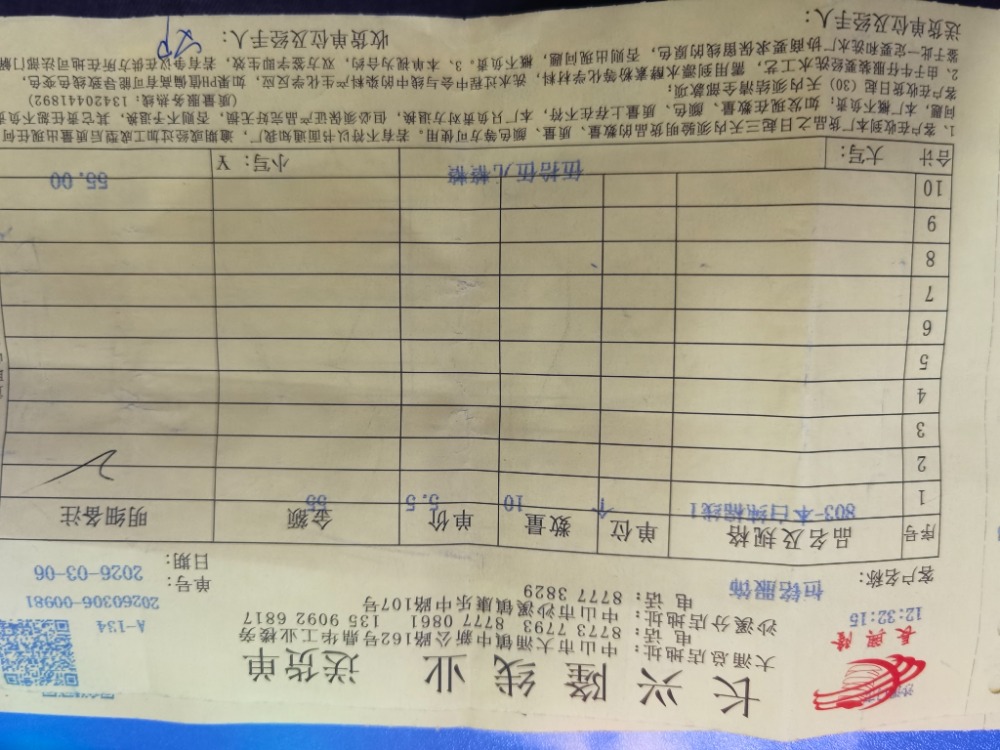 长兴隆线业 送货单
長興隆
12:32:15
大涌总店地址:中山市大涌镇中新公路162号鼎华工业楼旁
电话:8773 7793 8777 0861 135 9092 6817
沙溪分店地址:中山市沙溪镇康乐中路107号
电话:8777 3829
A-134
单号:20260306-00981
客户名称:恒铭服饰
日期:2026-03-06
序号 品名及规格 单位 数量 单价 金额 明细备注
1 803-本白纯棉线1 个 10 5.5 55
2
3
4
5
6
7
8
9
10
合计 大写:伍拾伍元整整 小写:¥ 55.00
1、客户在收到本厂货品之日起三天内须验明货品的数量、质量、颜色等方可使用,若有不符以书面通知我厂,逾期或经过加工成型后质量出现任何
问题,本厂概不负责;如发现在数量、颜色、质量上存在不符,本厂只负责对方退换,但必须保证产品完好无损,否则不予退换,其它责任概不负责
客户在收货日起(30)天内须结清全部款项; (质量服务热线:13420441892)
2、由于牛仔服装要经洗水工艺,需用到漂水酵素粉等化学材料,洗水过程中会与线中的染料产生化学反应,如果PH值偏高有可能导致线色变色,
鉴于此一定要和洗水厂协商要求保留线的原色,否则出现问题,概不负责。3、本单视为合约,双方签字即生效,若有争议在供方所在地司法部门解
送货单位及经手人: 收货单位及经手人: